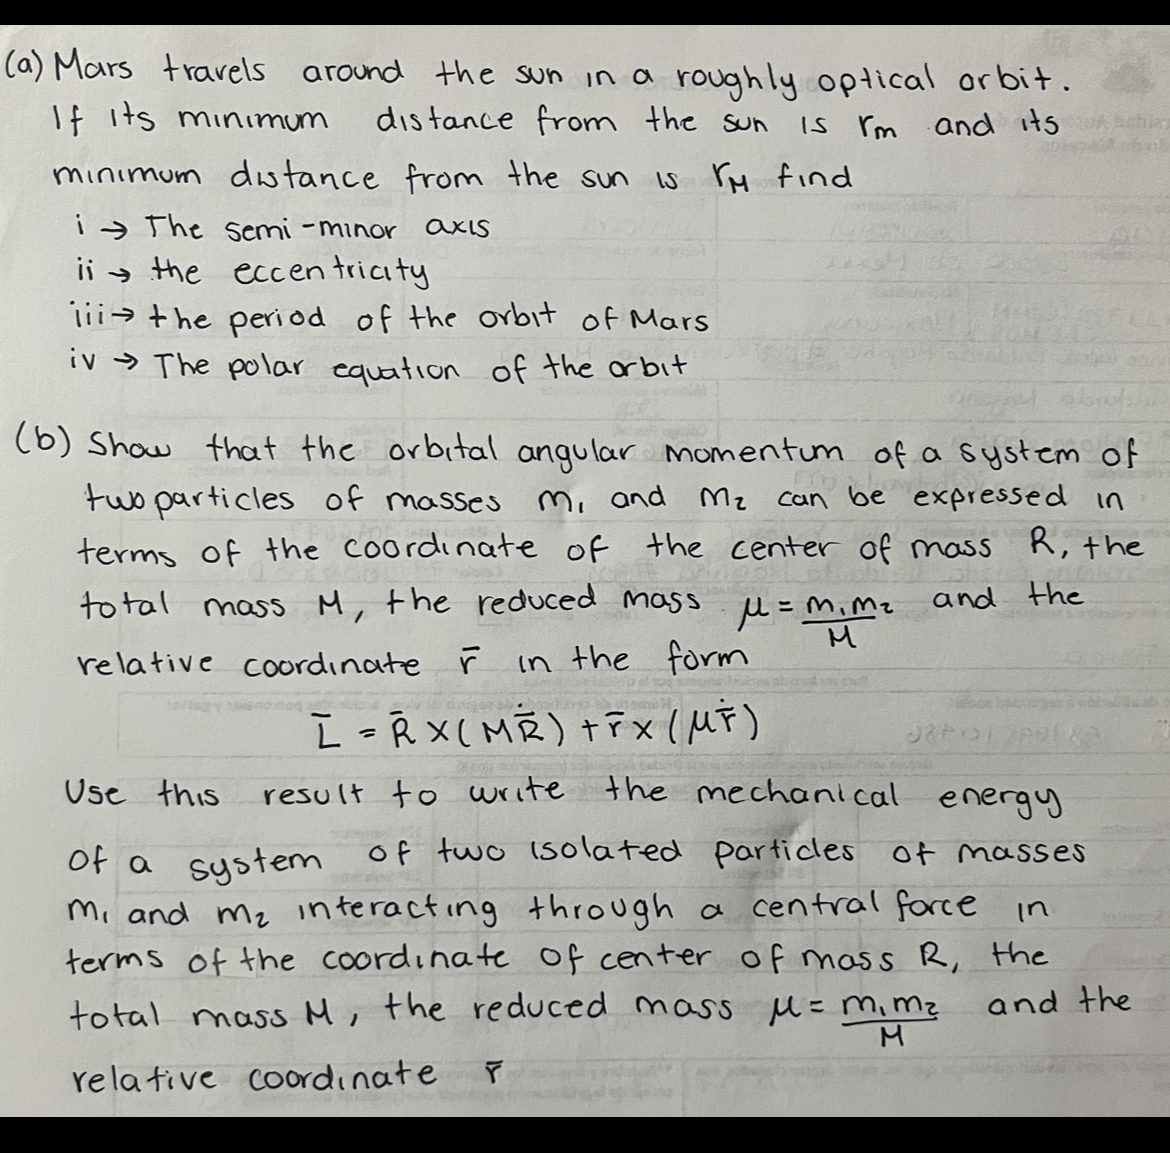 (a) Mars travels around the sun in a roughly optical orbit.
If its minimum distance from the sun is rm and its
minimum distance from the sun is rM find
i → The semi-minor axis
ii → the eccentricity
iii → the period of the orbit of Mars
iv → The polar equation of the orbit
(b) Show that the orbital angular momentum of a system of
two particles of masses m₁ and m₂ can be expressed in
terms of the coordinate of the center of mass R, the
total mass M, the reduced mass μ = m₁m₂/M and the
relative coordinate r̄ in the form
L̄ = R̄ × (MṘ̄) + r̄ × (μṙ̄)
Use this result to write the mechanical energy
of a system of two isolated particles of masses
m₁ and m₂ interacting through a central force in
terms of the coordinate of center of mass R, the
total mass M, the reduced mass μ = m₁m₂/M and the
relative coordinate r̄